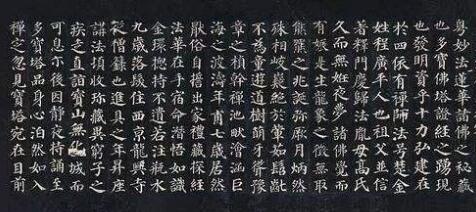 粵妙法蓮華諸佛之秘藏
也多寶佛塔證經之踴現
也發明資乎十力弘建在
於四依有禪師法號楚金
姓程廣平人也祖父並信
著釋門慶歸法胤母高氏
久而無姙夜夢諸佛覺而
有娠是生龍象之徵無取
熊羆之兆誕彌厥月炳然
殊相岐嶷絕於葷茹髫齔
不為童遊道樹萌牙聳豫
章之楨幹禪池畎澮涵巨
海之波濤年甫七歲居然
厭俗自誓出家禮藏探經
法華在手宿命潛悟如識
金環總持不遺若注瓶水
九歲落髮住西京龍興寺
從僧籙也進具之年昇座
講法頓收珍藏異窮子之
疾走直詣寶山無化城而
可息尒後因靜夜持誦至
多寶塔品身心泊然如入
禪定忽見寶塔宛在目前